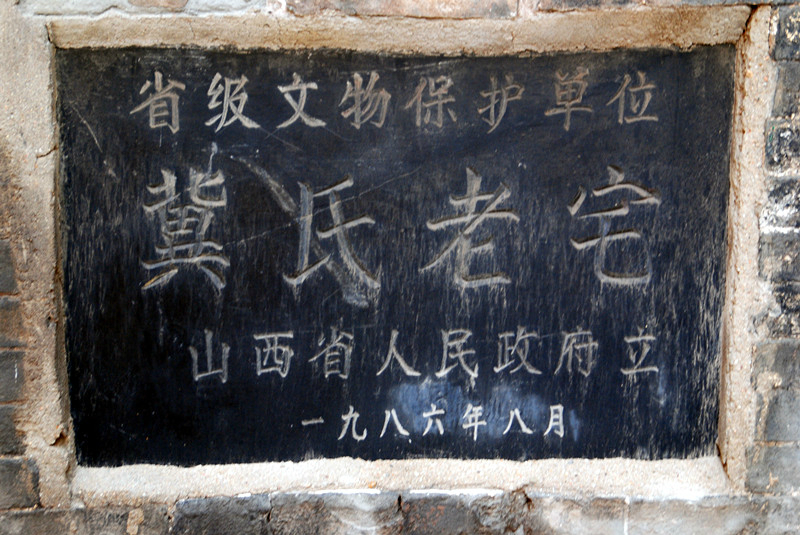 省级文物保护单位
冀氏老宅
山西省人民政府立
一九八六年八月